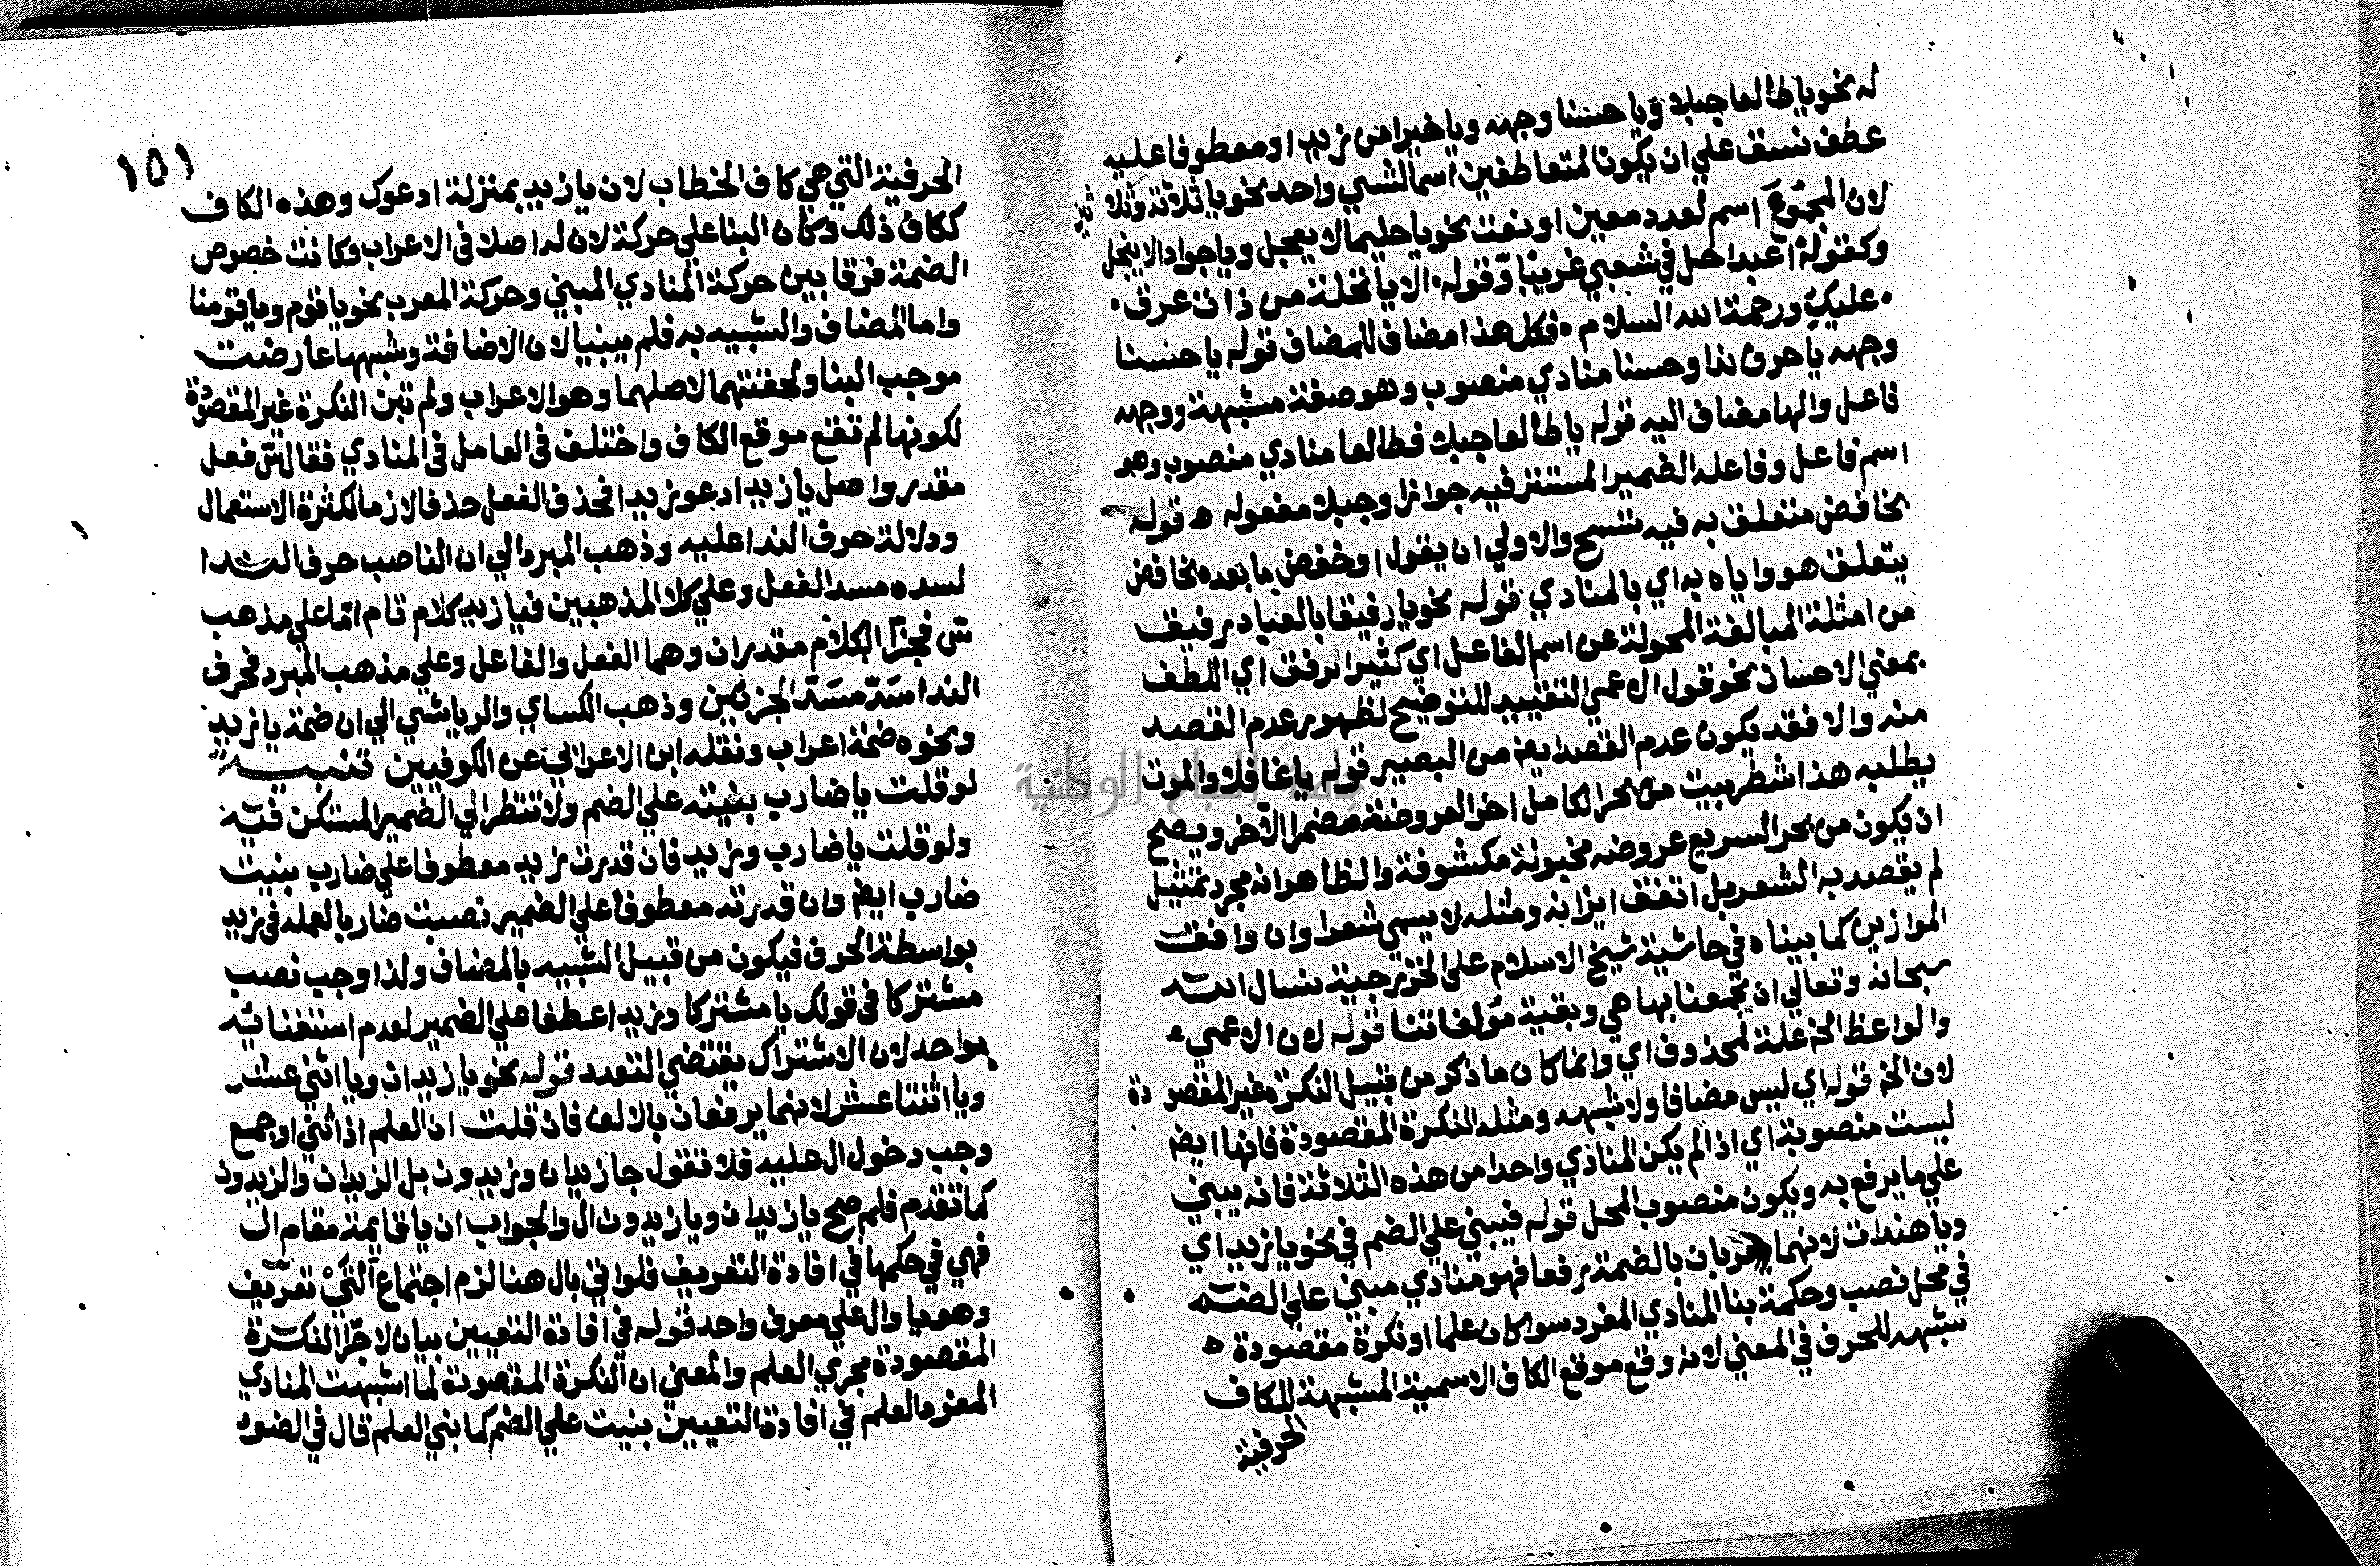 له نحو يا طالعا جبلا ويا حسنا وجهه ويا خيرا من زيد او معطوفا عليه
عطف نسق علي ان يكون المتعاطفين اسما لشي واحد نحو يا ثلاثة وثلاثين
لان المجموع اسم لعدد معين او نعت نحو يا حليما لا يعجل ويا جوادا لا يبخل
وكقوله اعبدا حل في شعبي غريبا وقوله الا يا نخلة من ذات عرق
عليك ورحمة الله السلام فكل هذا مضاف للمضاف قوله يا حسنا
وجهه يا حرف ندا وحسنا منادي منصوب وهو صفة مشبهة ووجهه
فاعل والها مضاف اليه قوله يا طالعا جبلا فطالعا منادي منصوب وهو
اسم فاعل وفاعله الضمير المستتر فيه جوازا وجبلا مفعوله ه قوله
بخافض متعلق به فيه تسمح والاولي ان يقول او خفض ما بعده بخافض
يتعلق هو واياه به اي بالمنادي قوله نحو يا رفيقا بالعباد رفيق
من امثلة المبالغة المحولة عن اسم الفاعل اي كثير الرفق اي اللطف
بمعني الاحسان نحو قول الاعمي التقييد للتوضيح لظهور عدم القصد
منه والا فقد يكون عدم القصد ايضا من البصير قوله يا غافلا والموت
يطلبه هذا شطر بيت من بحر الكامل احذ العروضة مضمر الاخر ويصح
ان يكون من بحر السريع عروضه مخبولة مكشوفة والظاهر انه مجرد تمثيل
لم يقصد به الشعر بل اتفق اتزانه ومثله لا يسمي شعرا وان وافق
الموازين كما بيناه في حاشية شيخ الاسلام علي الخزرجية نسال الله
سبحانه وتعالي ان يجمعنا بها هي وبقية مولفاتنا قوله لان الاعمي
والواعظ الخ علة لمحذوف اي وانما كان ما ذكر من قبيل النكرة غير المقصودة
لان الخ قوله اي ليس مضافا ولا شبهه ومثله النكرة المقصودة فانها ايضا
ليست منصوبة اي اذا لم يكن المنادي واحدا من هذه الثلاثة فانه يبني
علي ما يرفع به ويكون منصوب المحل قوله فيبني علي الضم في نحو يا زيد اي
ويا هندات لانهما يعربان بالضمة رفعا فهو منادي مبني علي الضم
في محل نصب وحكمة بنا المنادي المفرد سوا كان علما او نكرة مقصودة ه
شبهه للحرف في المعني لانه وقع موقع الكاف الاسمية المشبهة للكاف
الحرفية
١٥١
الحرفية التي هي كاف الخطاب لان يا زيد بمنزلة ادعوك وهذه الكاف
ككاف ذلك وكان البنا علي حركة لان له اصلا في الاعراب وكانت خصوص
الضمة فرقا بين حركة المنادي المبني وحركة المعرب نحو يا قوم ويا قومنا
واما المضاف والشبيه به فلم يبنيا لان الاضافة وشبهها عارضت
موجب البنا ولحقتهما لاصلهما وهو الاعراب ولم تبن النكرة غير المقصودة
لكونها لم تقع موقع الكاف واختلف في العامل في المنادي فقال س فعل
مقدر واصل يا زيد ادعو زيدا فحذف الفعل حذفا لازما لكثرة الاستعمال
ودلالة حرف الندا عليه وذهب المبرد الي ان الناصب حرف الندا
لسده مسد الفعل وعلي كلا المذهبين فيا زيد كلام تام اما علي مذهب
س فجزا الكلام مقدران وهما الفعل والفاعل وعلي مذهب المبرد فحرف
الندا سد مسد الجزئين وذهب الكساي والرياشي الي ان ضمة يا زيد
ونحوه ضمة اعراب ونقله ابن الاعرابي عن الكوفيين تنبيه
لو قلت يا ضارب بنيته علي الضم ولا تنظر الي الضمير المستكن فيه
ولو قلت يا ضارب وزيد فان قدرت زيد معطوفا علي ضارب بنيت
ضارب ايضا وان قدرته معطوفا علي الضمير نصبت ضاربا لعمله في زيد
بواسطة الحرف فيكون من قبيل الشبيه بالمضاف ولذا وجب نصب
مشتركا في قولك يا مشتركا وزيد اعطفا علي الضمير لعدم استغنائه
بواحد لان الاشتراك يقتضي التعدد قوله نحو يا زيدان ويا اثني عشر
ويا اثنتا عشر لانهما يرفعان بالالف فان قلت ان العلم اذا ثني او جمع
وجب دخول ال عليه فلا تقول جا زيدان وزيدون بل الزيدان والزيدون
كما تقدم فلم صح يا زيدان ويا زيدون ال والجواب ان يا قايمة مقام ال
فهي في حكمها في افادة التعريف فلو اتي بال هنا لزم اجتماع التي تعريف
وهو يا وال علي معرف واحد قوله في افادة التعيين بيان لاجرا النكرة
المقصودة مجري العلم والمعني ان النكرة المقصودة لما اشبهت المنادي
المفرد العلم في افادة التعيين بنيت علي الضم كما بني العلم قال في الضو